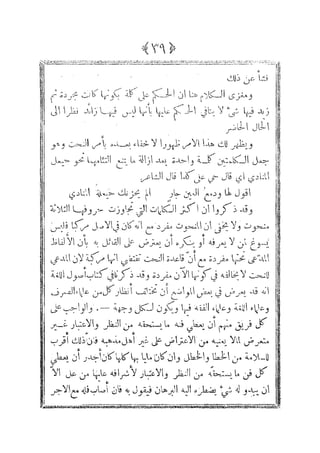 ﴿ ٣٩ ﴾
فنشأ عن ذلك
ومغزى الكلام هنا ان الحكم على كلمة بكونها كانت مجردة ثم
زيد فيها شئ لا ينافي الحكم عليها بأنها ليس فيها زائد نظرا الى
الحال الحاضر
ويظهر لك هذا الامر ظهورا لا خفاء بعده بأمر النحت وهو
جعل الكلمتين كلمة واحدة بعد ازالة ما يمنع التئامهما نحو حيعل
المنادى اي قال حي على كذا قال الشاعر
اقول لها ودمع العين جار الم يحزنك حيعلة المنادي
وقد ذكروا ان اكثر الكلمات التي تجاوزت حروفها الثلاثة
منحوت ولا يخفى أن المنحوت مفرد مع انه كان في الاصل مركبا فليس
يسوغ لمن لا يعرفه أو ينكره أن يعترض على القائل به بأن الألفاظ
المدعى نحتها مفردة مع أنّ قاعدة النحت تقتضي انها مركبة لان المدعي
للنحت لا يخالفه في كونها الآن مفردة وقد ذكرنا في كتاب أصول اللغة
انه قد يعرض في بعض المواضع أن تختلف أنظار كل من علماء الصرف
وعلماء اللغة وعلماء الفقه فيها ويكون لكل وجهة — . والواجب على
كل فريق منهم أن يعطي فنه ما يستحقه من النظر والاعتبار غير
متعرض لما لا يعنيه من الاعتراض على غير أهل مذهبه فان ذلك أقرب
للسلامة من الخطا والخطل وان كان مليا بها كلها كان أجدر أن يعطي
كل فن ما يستحقه من النظر والاعتبار لأشرافه عليها من عل الا
ان يبدو له شئ يضطره اليه البرهان فيقول به فان أصاب فله مع الاجر